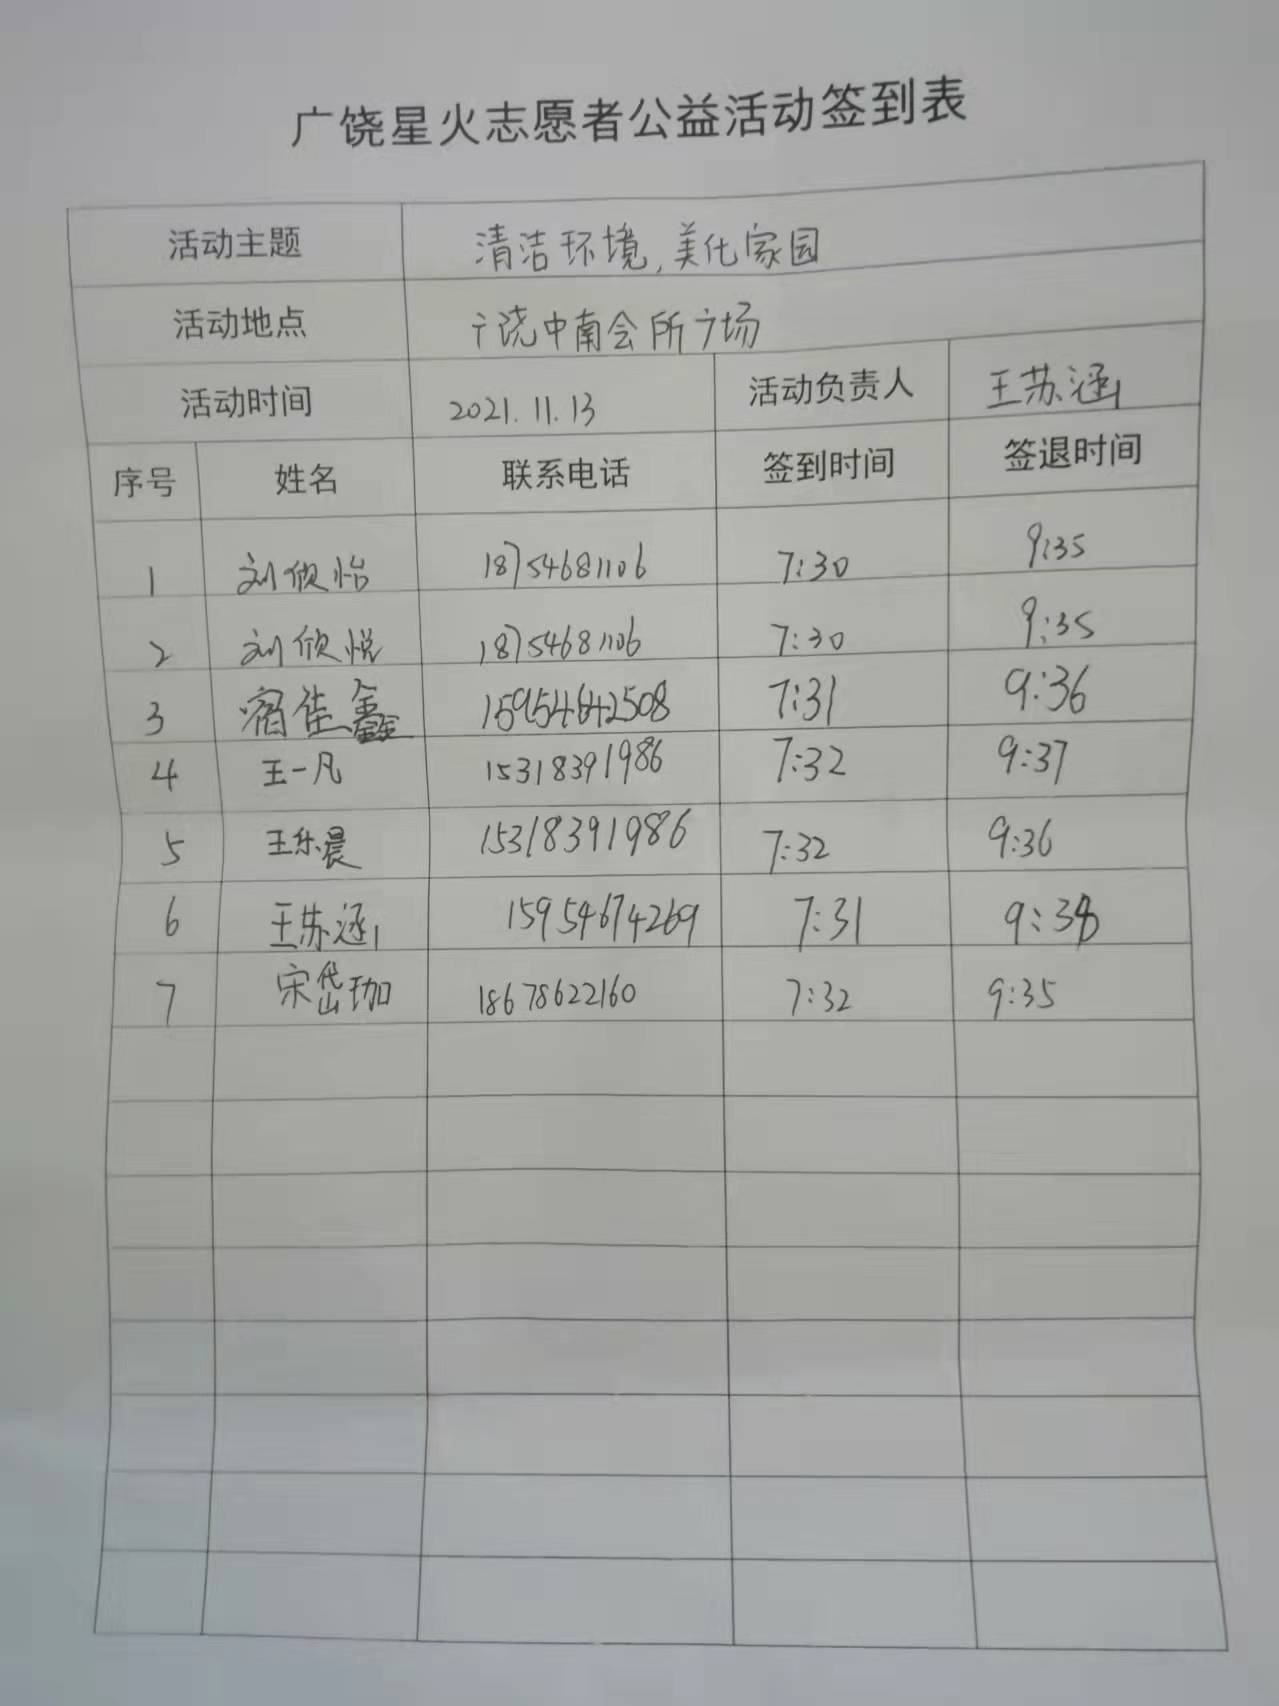 广饶星火志愿者公益活动签到表
活动主题 清洁环境,美化家园
活动地点 广饶中南会所广场
活动时间 2021.11.13 活动负责人 王苏涵
序号 姓名 联系电话 签到时间 签退时间
1 刘欣怡 18754681106 7:30 9:35
2 刘欣悦 18754681106 7:30 9:35
3 宿佳鑫 15954642508 7:31 9:36
4 王一凡 15318391986 7:32 9:37
5 王乐晨 15318391986 7:32 9:36
6 王苏涵 15954674269 7:31 9:38
7 宋岱珈 18678622160 7:32 9:35